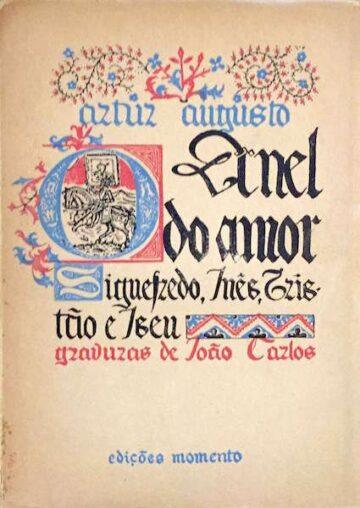 artur augusto
O Anel
do amor
Siguefredo, Inês, Tris-
tão e Iseu
gravuras de João Carlos
edições momento